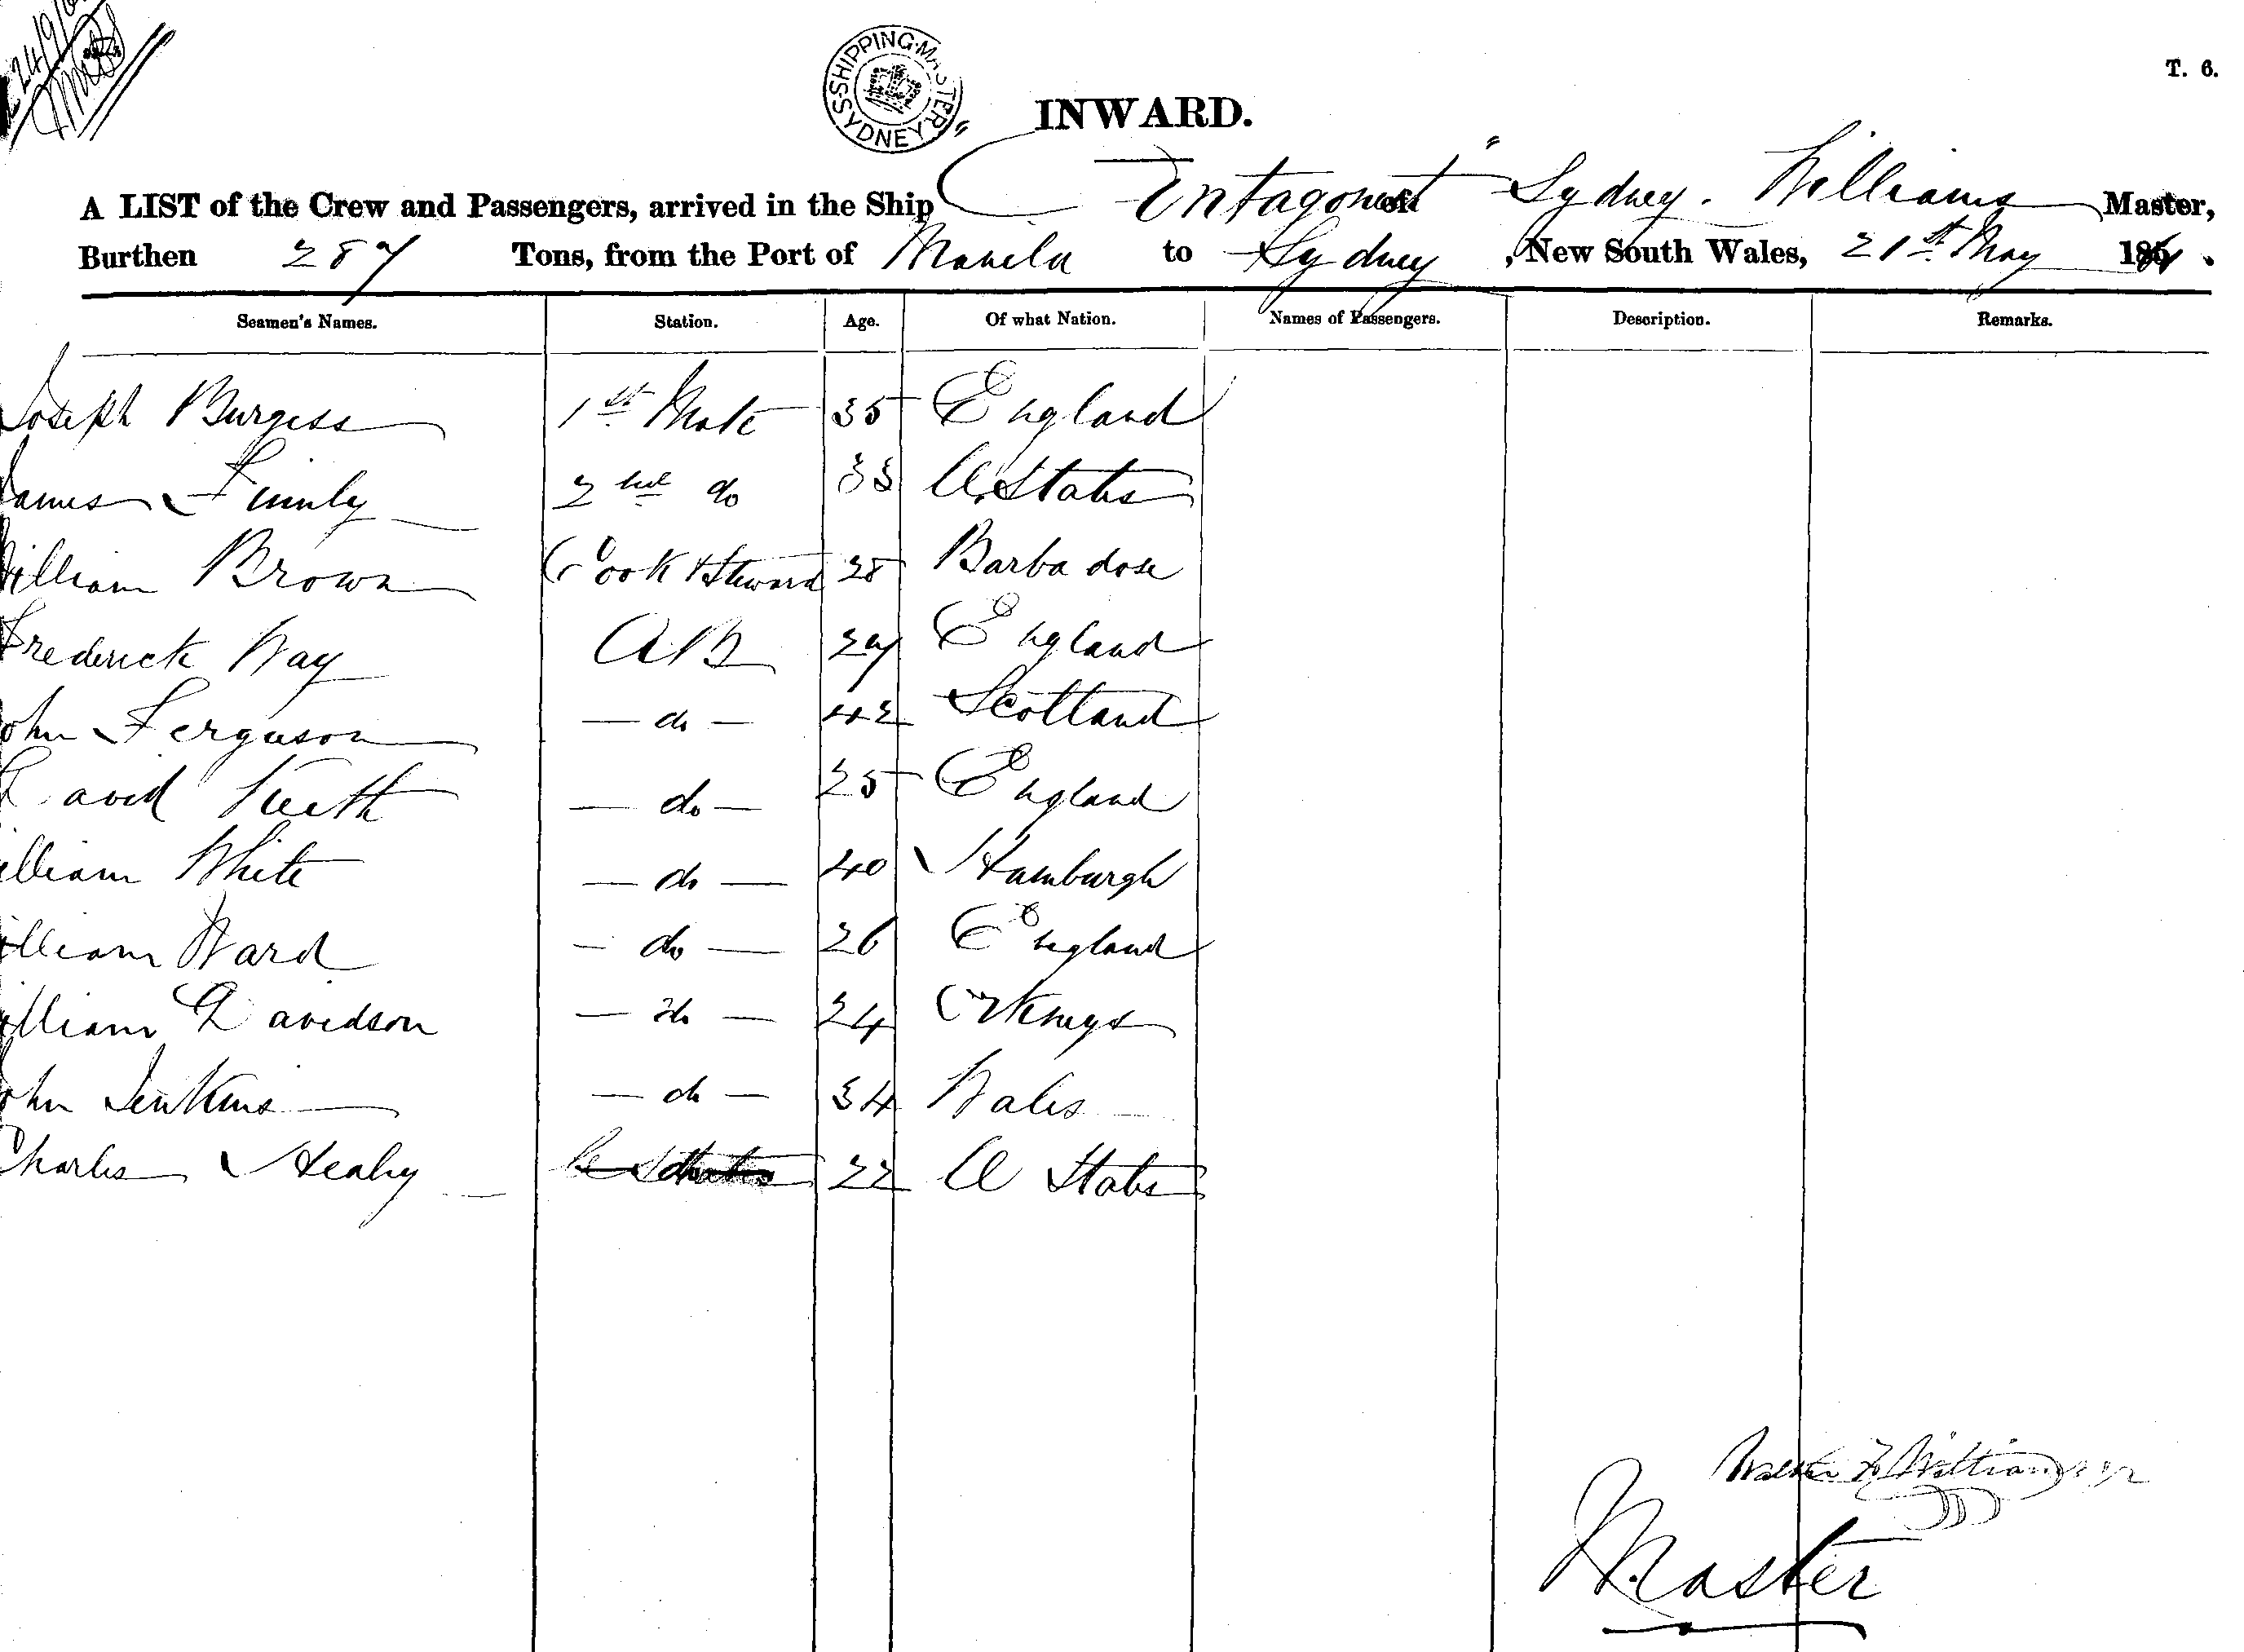 24/9/
SHIPPING MASTER SYDNEY
T. 6.
INWARD.
A LIST of the Crew and Passengers, arrived in the Ship "Entagonist" of Sydney. Williams Master,
Burthen 287 Tons, from the Port of Manila to Sydney, New South Wales, 21st May 1861.
Seamen's Names. Station. Age. Of what Nation. Names of Passengers. Description. Remarks.
Joseph Burgess 1st Mate 35 England
James 2nd do 33 U. States
William Brown Cook & Steward 28 Barbadose
Frederick Way AB 29 England
John Ferguson - do - 42 Scotland
David Keith - do - 25 England
William White - do - 40 Hamburgh
William Ward - do - 26 England
William Davidson - do - 24 Orkneys
John Jenkins - do - 34 Wales
Charles Healy do 22 U States
Master